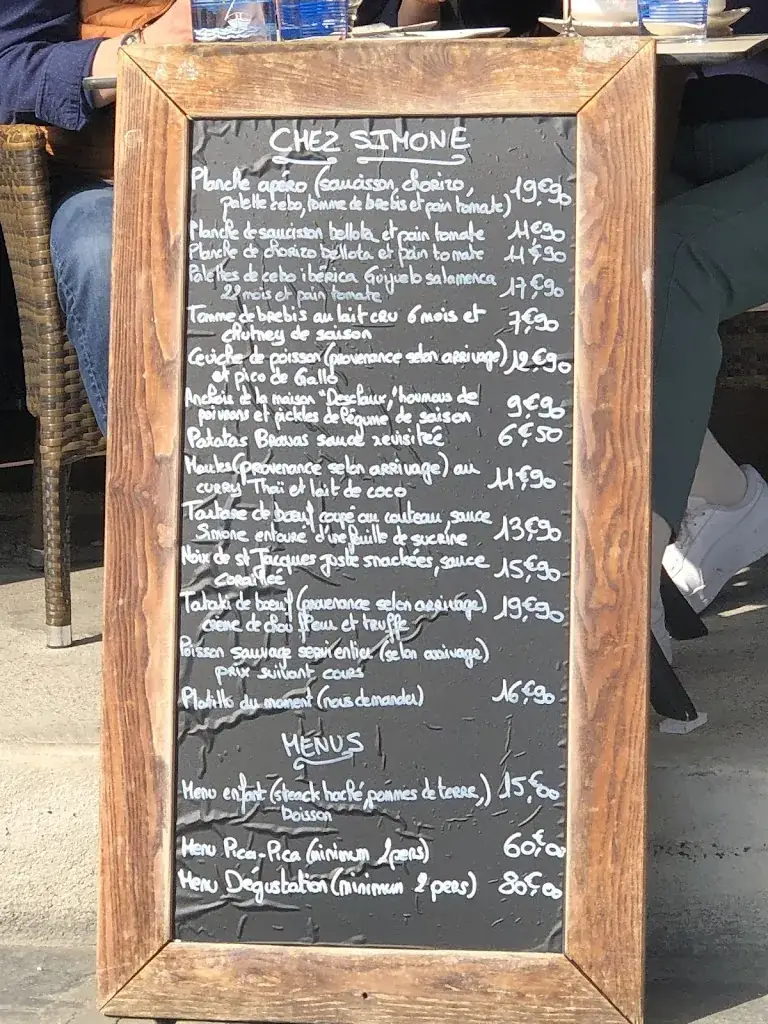 CHEZ SIMONE
Planche apéro (saucisson, chorizo, 19,€90
palette cebo, tomme de brebis et pain tomate)
Planche de saucisson bellota et pain tomate 11€90
Planche de chorizo bellota et pain tomate 11,€90
Palettes de cebo ibérica Guijuelo salamenca 17,€90
22 mois et pain tomate
Tomme de brebis au lait CRU 6 mois et 7,€90
chutney de saison
Ceviche de poisson (provenance selon arrivage) 12,€90
et pico de Gallo
Anchois de la maison "Desclaux", houmous de 9,€90
poivrons et pickles de légume de saison
Patatas Bravas sauce revisitée 6,€50
Moules (provenance selon arrivage) au 11,€90
CURRY Thaï et lait de coco
Tartare de bœuf coupé au couteau, sauce 13,€90
Simone entouré d'une feuille de sucrine
Noix de st Jacques juste snackées, sauce 15,€90
coraillée
Tataki de bœuf (provenance selon arrivage) 19,€90
crème de chou fleur et truffe
Poisson sauvage servi entier (selon arrivage)
prix suivant cours
Platillo du moment (nous demander) 16,€90
MENUS
Menu enfant (steack haché, pommes de terre,) 15,€00
boisson
Menu Pica-Pica (minimum 2pers) 60,€00
Menu Dégustation (minimum 2 pers) 80€00